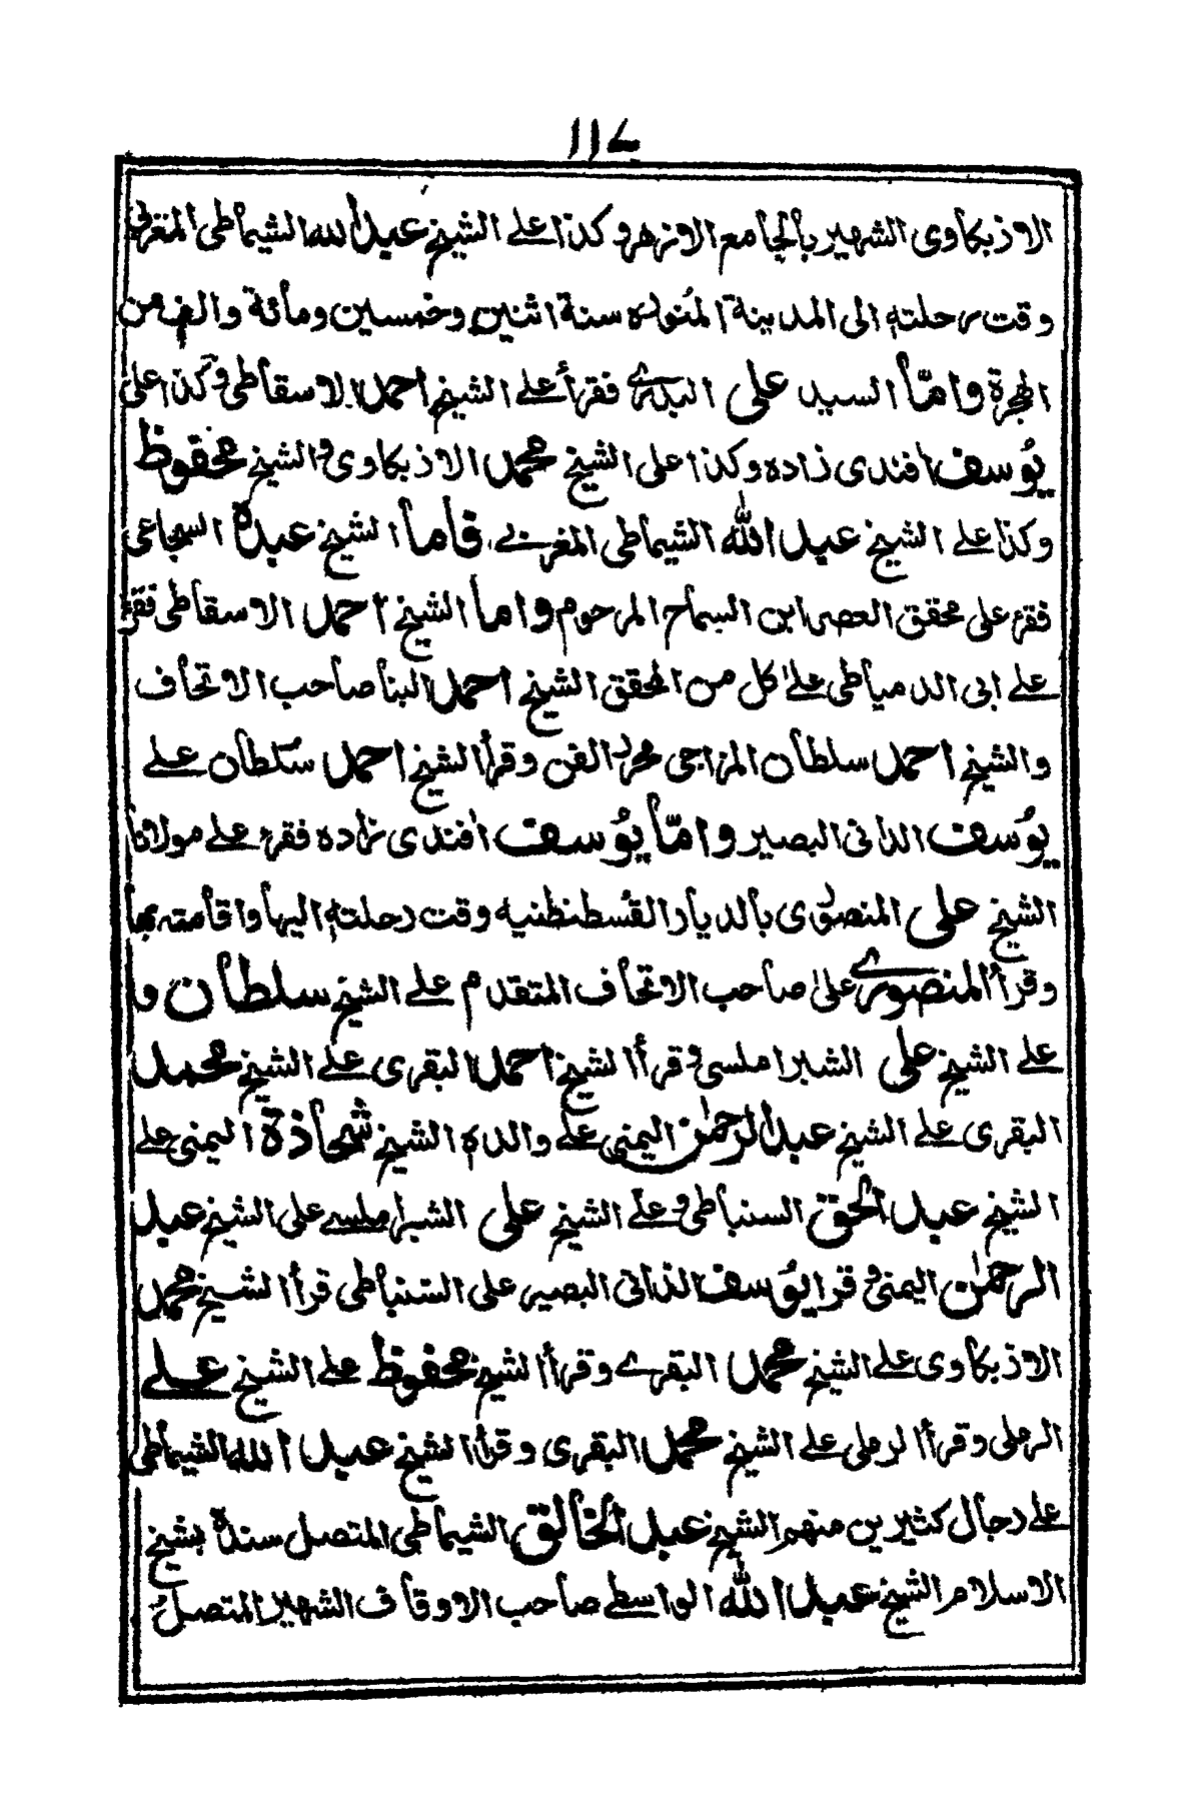 ١١٤
الاذبكاوى الشهير بالجامع الازهر وكذا على الشيخ عبد الله الشيماطى المغربى
وقت رحلته الى المدينة المنورة سنة اثنين وخمسين ومائة والف من
الهجرة وامّا السيد على البدرى فقرأ على الشيخ احمد الاسقاطى وكذا على
يوُسف افندى زاده وكذا على الشيخ محمد الاذبكاوى والشيخ محفوظ
وكذا على الشيخ عبد الله الشيماطى المغربى فاما الشيخ عبده السجاعى
فقرء على محقق العصر ابن السماح المرحوم واما الشيخ احمد الاسقاطى فقرء
على ابى الدمياطى على كل من المحقق الشيخ احمد البنا صاحب الاتحاف
والشيخ احمد سلطان المزاجى محرر الفن وقرأ الشيخ احمد سلطان على
يوُسف الدانى البصير وامّا يوُسف افندى زاده فقرء على مولانا
الشيخ على المنصورى بالديار القسطنطنيه وقت رحلته اليها واقامته بها
وقرأ المنصورى على صاحب الاتحاف المتقدم على الشيخ سلطان و
على الشيخ على الشبراملسى وقرأ الشيخ احمد البقرى على الشيخ محمد
البقرى على الشيخ عبد الرحمن اليمنى على والده الشيخ شحاذة اليمنى على
الشيخ عبد الحق السنباطى وعلى الشيخ على الشبراملسى على الشيخ عبد
الرحمن اليمنى وقرا يوُسف الدانى البصير على السنباطى قرأ الشيخ محمد
الاذبكاوى على الشيخ محمد البقرى وقرأ الشيخ محفوظ على الشيخ على
الرملى وقرأ الرملى على الشيخ محمد البقرى وقرأ الشيخ عبد الله الشيماطى
على رجال كثيرين منهم الشيخ عبد الخالق الشيماطى المتصل سنده بشيخ
الاسلام الشيخ عبد الله الواسطى صاحب الاوقاف الشهير المتصل